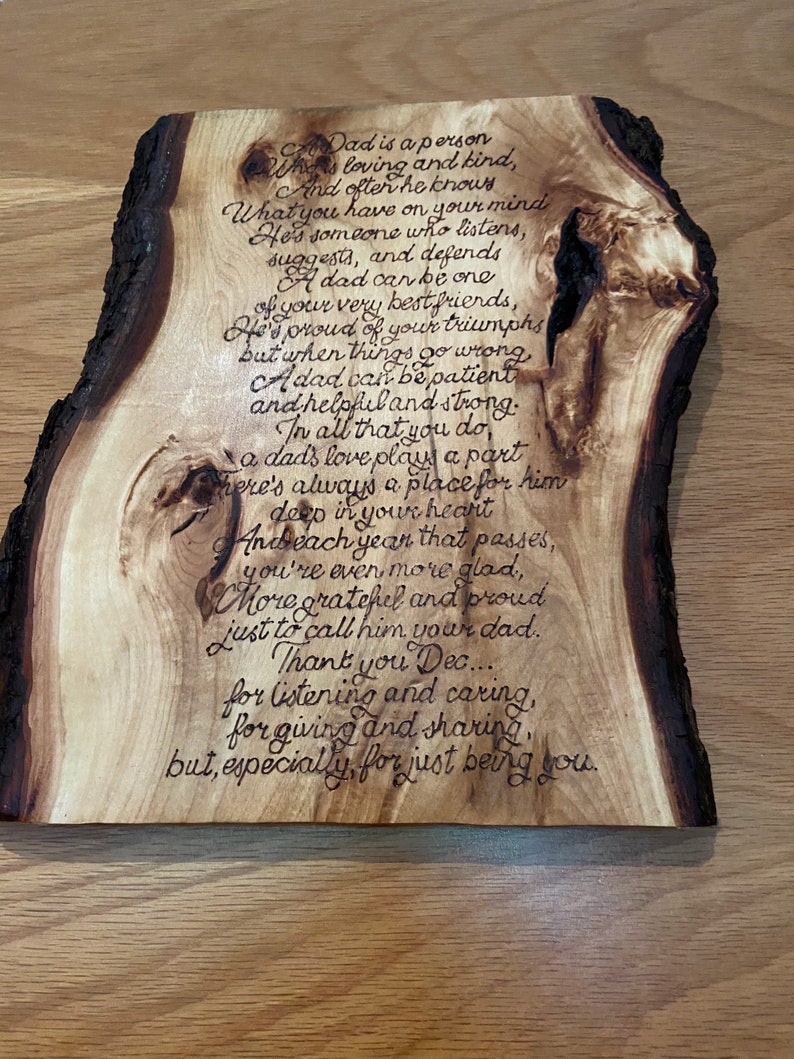 A Dad is a person
Who is loving and kind,
And often he knows
What you have on your mind
He's someone who listens,
suggests, and defends
A dad can be one
of your very best friends,
He's proud of your triumphs
but when things go wrong,
A dad can be patient
and helpful and strong.
In all that you do,
a dad's love plays a part
There's always a place for him
deep in your heart
And each year that passes,
you're even more glad,
More grateful and proud
just to call him your dad.
Thank you Dec...
for listening and caring,
for giving and sharing,
but, especially, for just being you.